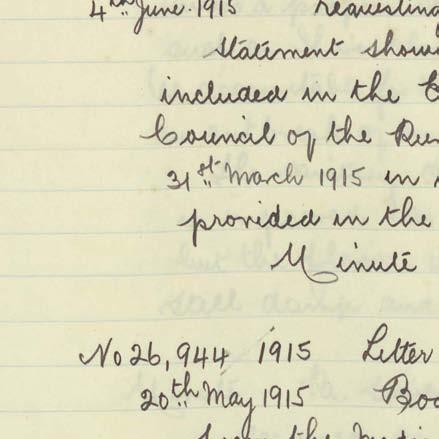 4th June 1915 requesting
Statement show
included in the
Council of the
31st March 1915 in
provided in the
Minute
No 26,944 1915 Letter
20th May 1915
from the